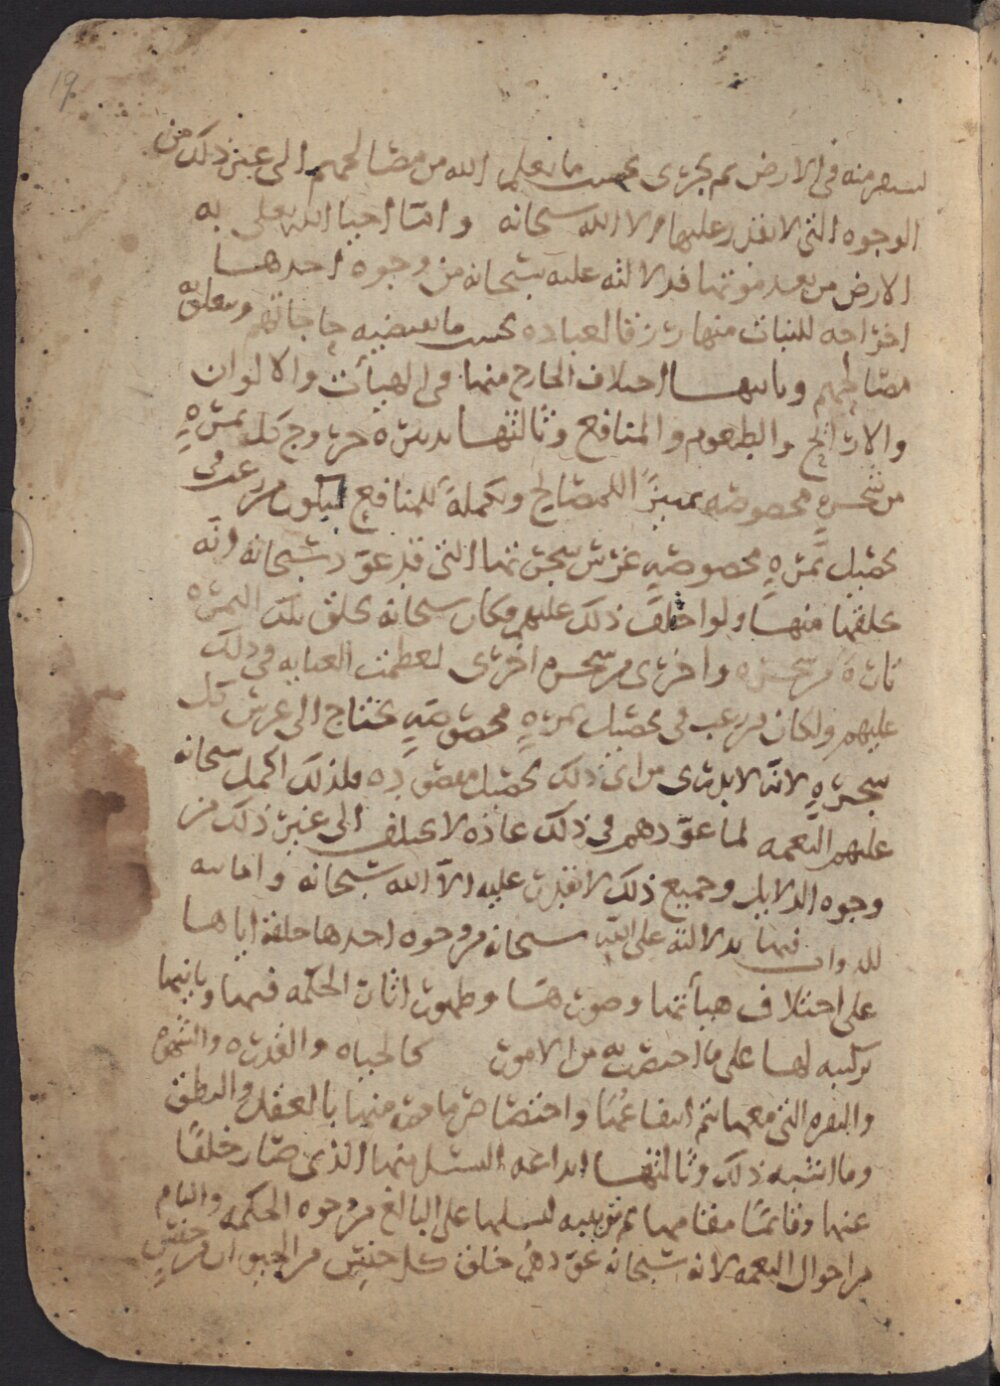 19
ليستقر منه في الارض ثم يجري بحسب ما يعلم الله من مصالحهم الى غير ذلك من
الوجوه التي لا يقدر عليها الا الله سبحانه واما احيا الله تعلى به
الارض من بعد موتها فدلالته عليه سبحانه من وجوه احدها
اخراجه للنبات منها رزقا لعباده بحسب ما تقتضيه حاجاتهم ويتعلق به
مصالحهم وثانيها اختلاف الخارج منها في الهيأت والالوان
والارائح والطعوم والمنافع وثالثها تدبيره خروج كل ثمرة
من شجرة مخصوصة تمييزا للمصالح وتكملة للمنافع ليكون من رغب في
تحصيل ثمرة مخصوصة غرس شجرتها التي قد عود سبحانه انه
يخلقها منها ولو اختلف ذلك عليهم وكان سبحانه يخلق تلك الثمرة
تارة من شجرة واخرى من شجرة اخرى لعظمت العنايه في ذلك
عليهم ولكان من رغب في تحصيل ثمرة مخصوصة يحتاج الى غرس كل
شجرة لانه لا يدرى من اي ذلك تحصيل مقصوده فلذلك اكمل سبحانه
عليهم النعمه لما عودهم في ذلك عاده لا تختلف الى غير ذلك من
وجوه الدلايل وجميع ذلك لا يقدر عليه الا الله سبحانه واما بثه
للدواب فيها فدلالته على الله سبحانه من وجوه احدها خلقه اياها
على اختلاف هيأتها وصورها وظهور اثار الحكمه فيها وثانيها
تركيبه لها على ما اختصت به من الامور كالحياه والقدره والشهوه
والنفره التي معها يتم انتفاعها واختصاص ما خص منها بالعقل والنطق
وما اشبه ذلك وثالثها ابداعه النسل منها الذي صار خلفا
عنها وقائما مقامها ثم تربيبه لنسلها على البالغ من وجوه الحكمه والتام
من احوال النعمه لانه سبحانه عود في خلق كل جنس من الحيوان من جنس